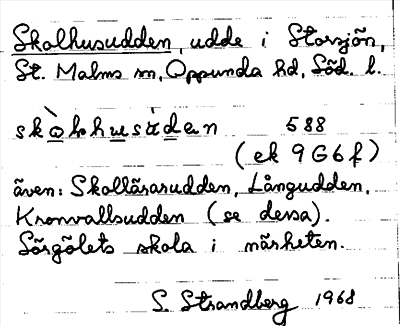 Skolhusudden, udde i Storsjön,
St. Malms sn, Oppunda hd, Söd. l.
skò̲lhu̲sùde̲n 588
(ek 9G6f)
även: Skollärarudden, Långudden,
Kronvallsudden (se dessa).
Sörgölets skola i närheten.
S. Strandberg 1968